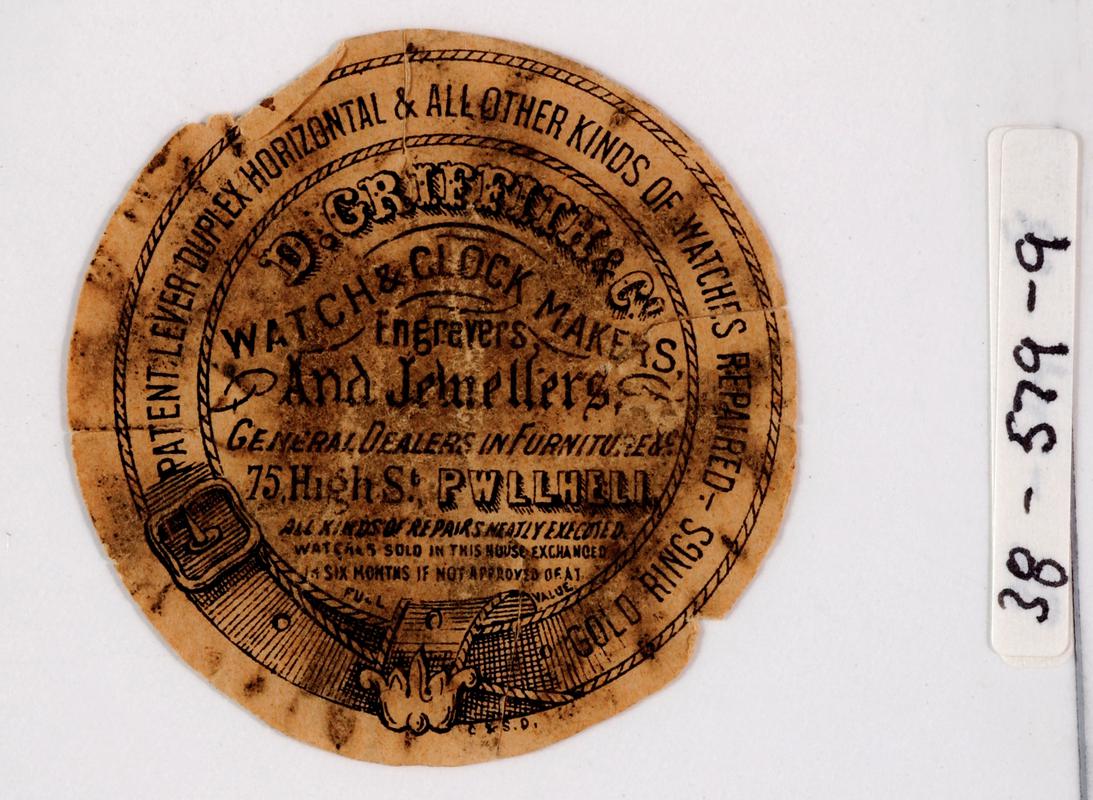 PATENT LEVER DUPLEX HORIZONTAL & ALL OTHER KINDS OF WATCHES REPAIRED - GOLD RINGS
D. GRIFFITH & Co.
WATCH & CLOCK MAKERS,
Engravers
And Jewellers,
GENERAL DEALERS IN FURNITURE &c.
75, High St. PWLLHELI.
ALL KINDS OF REPAIRS NEATLY EXECUTED.
WATCHES SOLD IN THIS HOUSE EXCHANGED
IN SIX MONTHS IF NOT APPROVED OF AT
FULL VALUE
C & S.D.
38-579-9